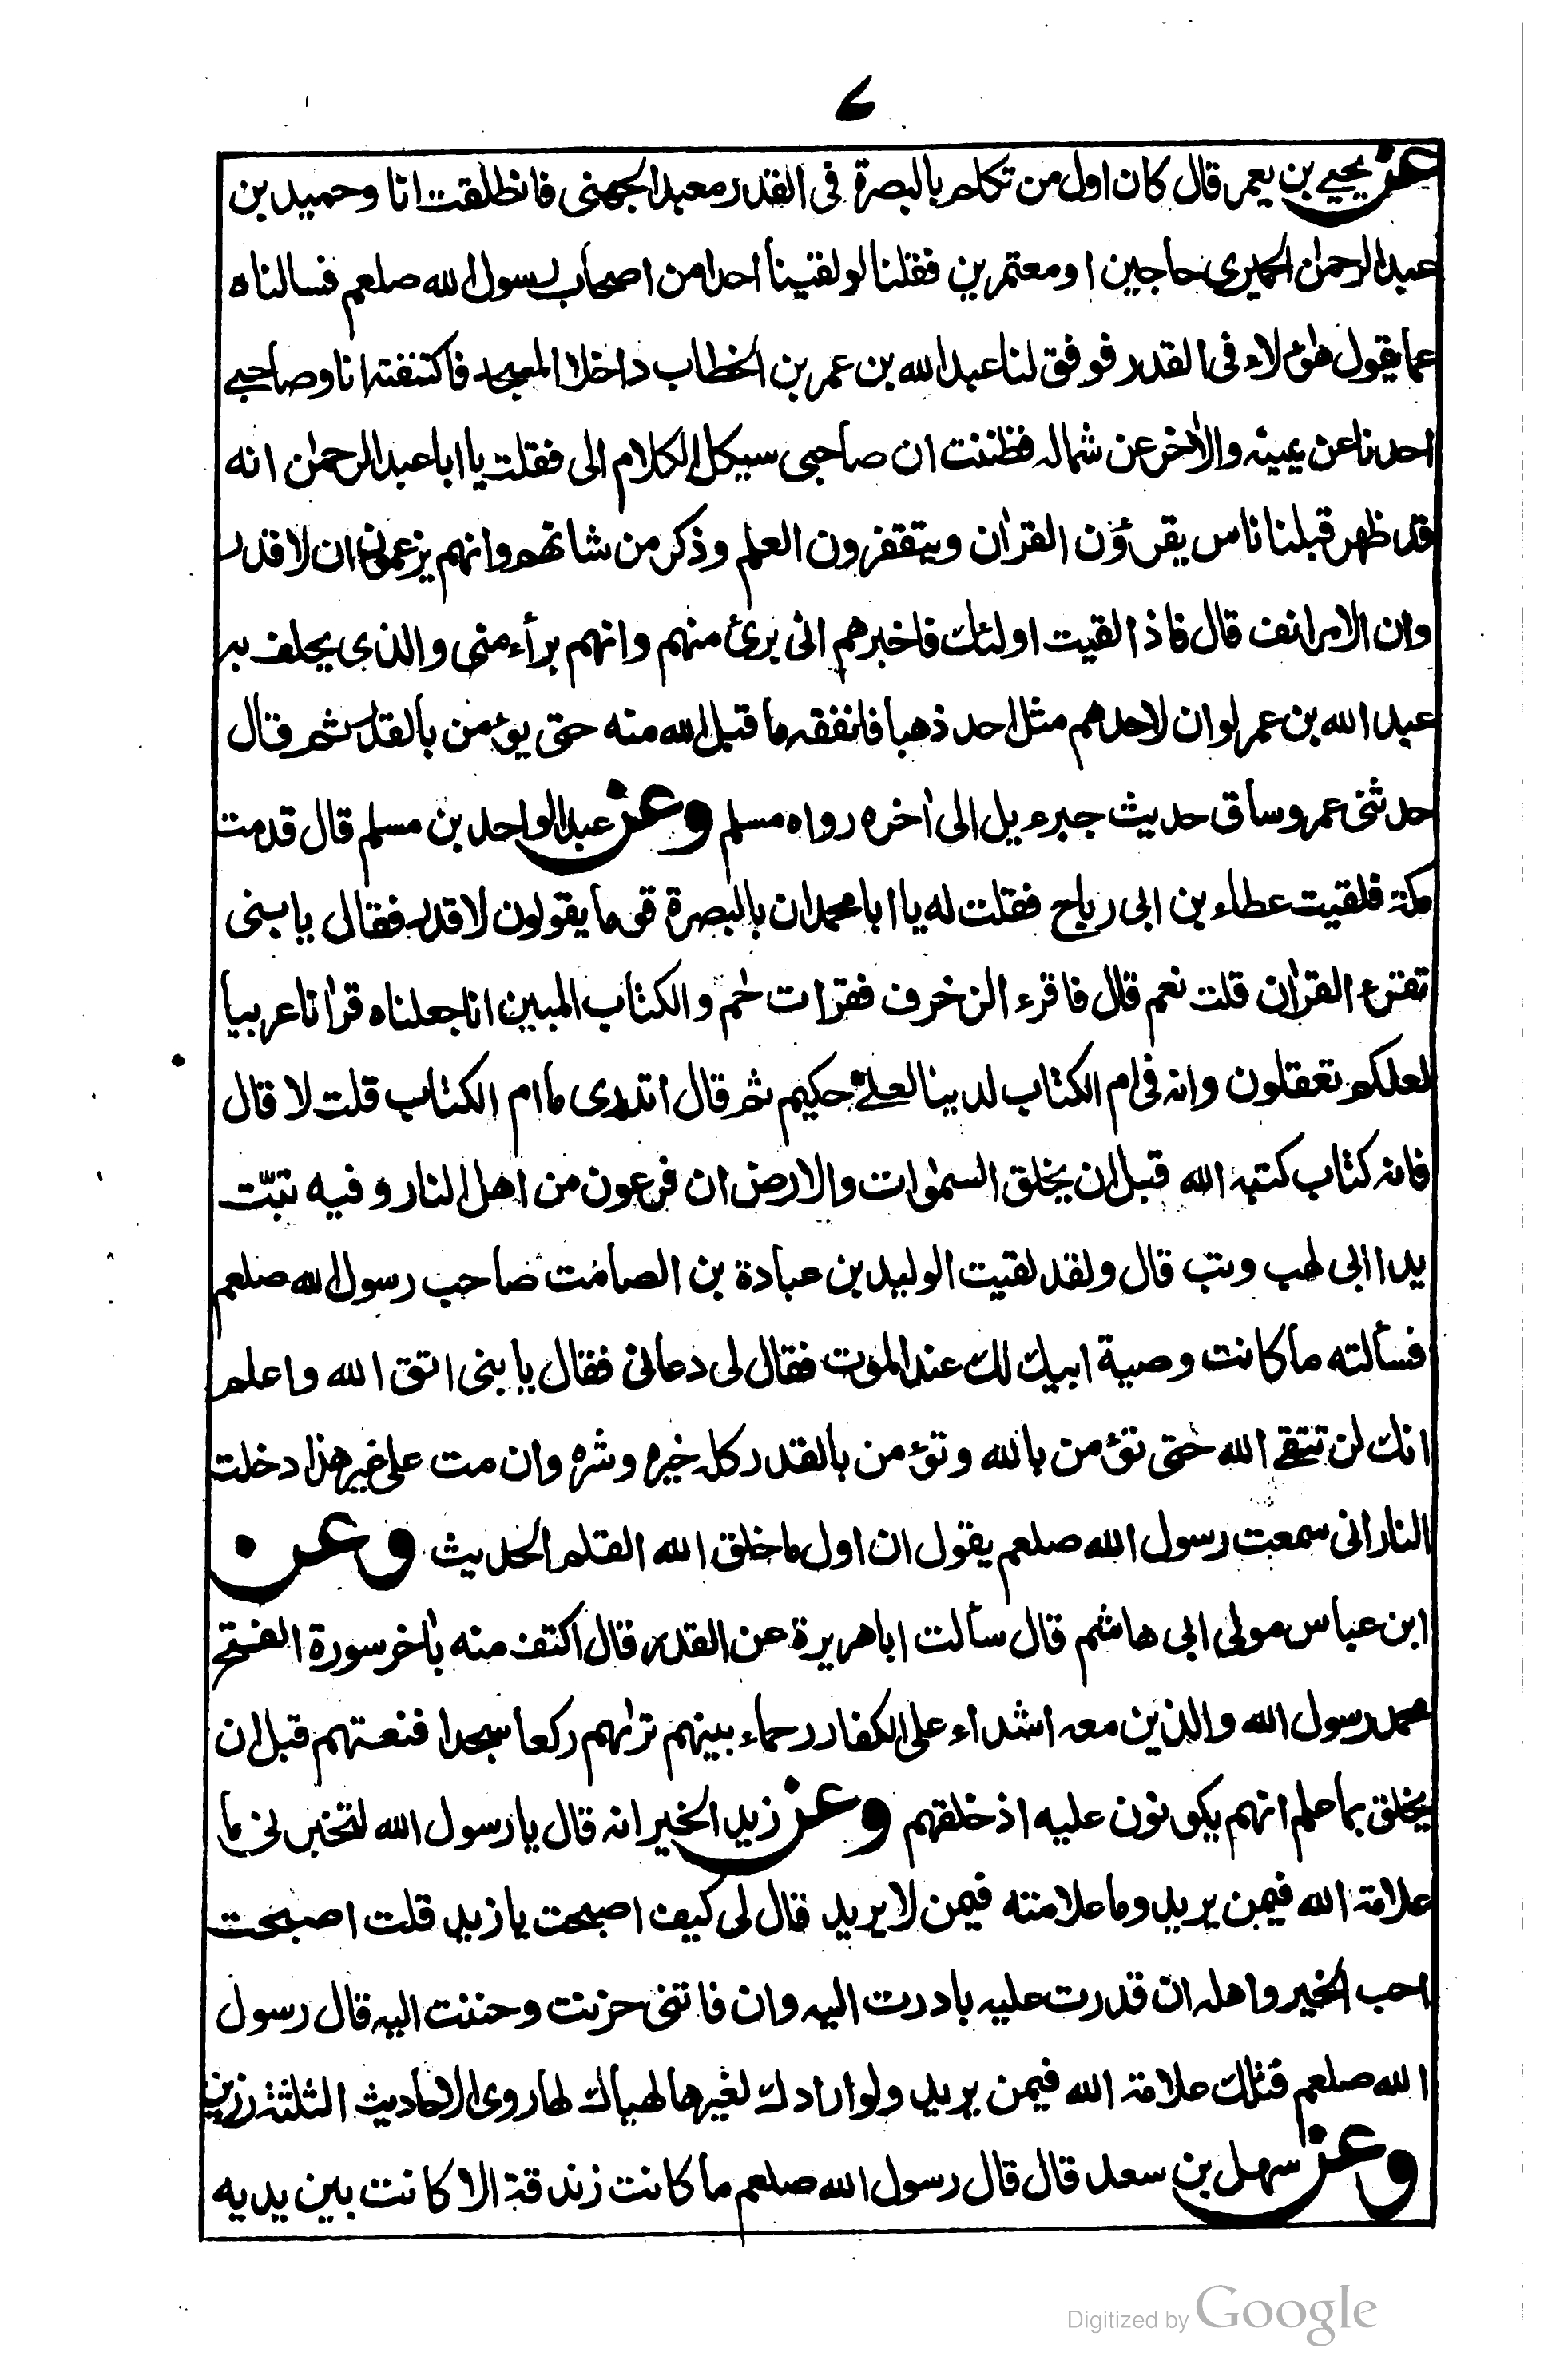 ٧
عن يحيى بن يعمر قال كان اول من تكلم بالبصرة فى القدر معبد الجهنى فانطلقت انا وحميد بن
عبد الرحمن الحميرى حاجين او معتمرين فقلنا لو لقينا احدا من اصحاب رسول الله صلعم فسالناه
عما يقول هٰؤلاء فى القدر فوفق لنا عبد الله بن عمر بن الخطاب داخلا المسجد فاكتنفته انا وصاحبى
احدنا عن يمينه والاٰخر عن شماله فظننت ان صاحبى سيكل الكلام الى فقلت يا ابا عبد الرحمٰن انه
قد ظهر قبلنا ناس يقرؤن القراٰن ويتقفرون العلم وذكر من شانهم وانهم يزعمون ان لا قدر
وان الامر انف قال فاذا لقيت اولئك فاخبرهم انى برئ منهم وانهم برأء منى والذى يحلف به
عبد الله بن عمر لو ان لاحدهم مثل احد ذهبا فانفقه ما قبل الله منه حتى يؤمن بالقدر ثم قال
حدثنى عمر وساق حديث جبرءيل الى اٰخره رواه مسلم وعن عبد الواحد بن مسلم قال قدمت
مكة فلقيت عطاء بن ابى رباح فقلت له يا ابا محمد ان بالبصرة قوما يقولون لا قدر فقال يا بنى
تقرء القراٰن قلت نعم قال فاقرء الزخرف فقرات حٰم والكتاب المبين انا جعلناه قراٰنا عربيا
لعلكم تعقلون وانه فى ام الكتاب لدينا لعلى حكيم ثم قال اتدرى ما ام الكتاب قلت لا قال
فانه كتاب كتبه الله قبل ان يخلق السمٰوات والارض ان فرعون من اهل النار وفيه تبّت
يدا ابى لهب وتب قال ولقد لقيت الوليد بن عبادة بن الصامت صاحب رسول الله صلعم
فسألته ما كانت وصية ابيك لك عند الموت فقال لى دعانى فقال يا بنى اتق الله واعلم
انك لن تتقى الله حتى تؤمن بالله وتؤمن بالقدر كله خيره وشره وان مت على غير هذا دخلت
النار انى سمعت رسول الله صلعم يقول ان اول ما خلق الله القلم الحديث وعن
ابن عباس مولى ابى هاشم قال سألت ابا هريرة عن القدر قال اكتف منه باٰخر سورة الفتح
محمد رسول الله والذين معه اشداء على الكفار رحماء بينهم ترٰىهم ركعا سجدا فنعتهم قبل ان
يخلق بما علم انهم يكونون عليه اذ خلقهم وعن زيد الخير انه قال يا رسول الله لتخبرنى ما
علامة الله فيمن يريد وما علامته فيمن لا يريد قال لى كيف اصبحت يا زيد قلت اصبحت
احب الخير واهله ان قدرت عليه بادرت اليه وان فاتنى حزنت وحننت اليه قال رسول
الله صلعم فتلك علامة الله فيمن يريد ولو ارادك لغيرها لهياك لها روى الاحاديث الثلثة رزين
وعن سهل بن سعد قال قال رسول الله صلعم ما كانت زندقة الا كانت بين يديه
Digitized by Google